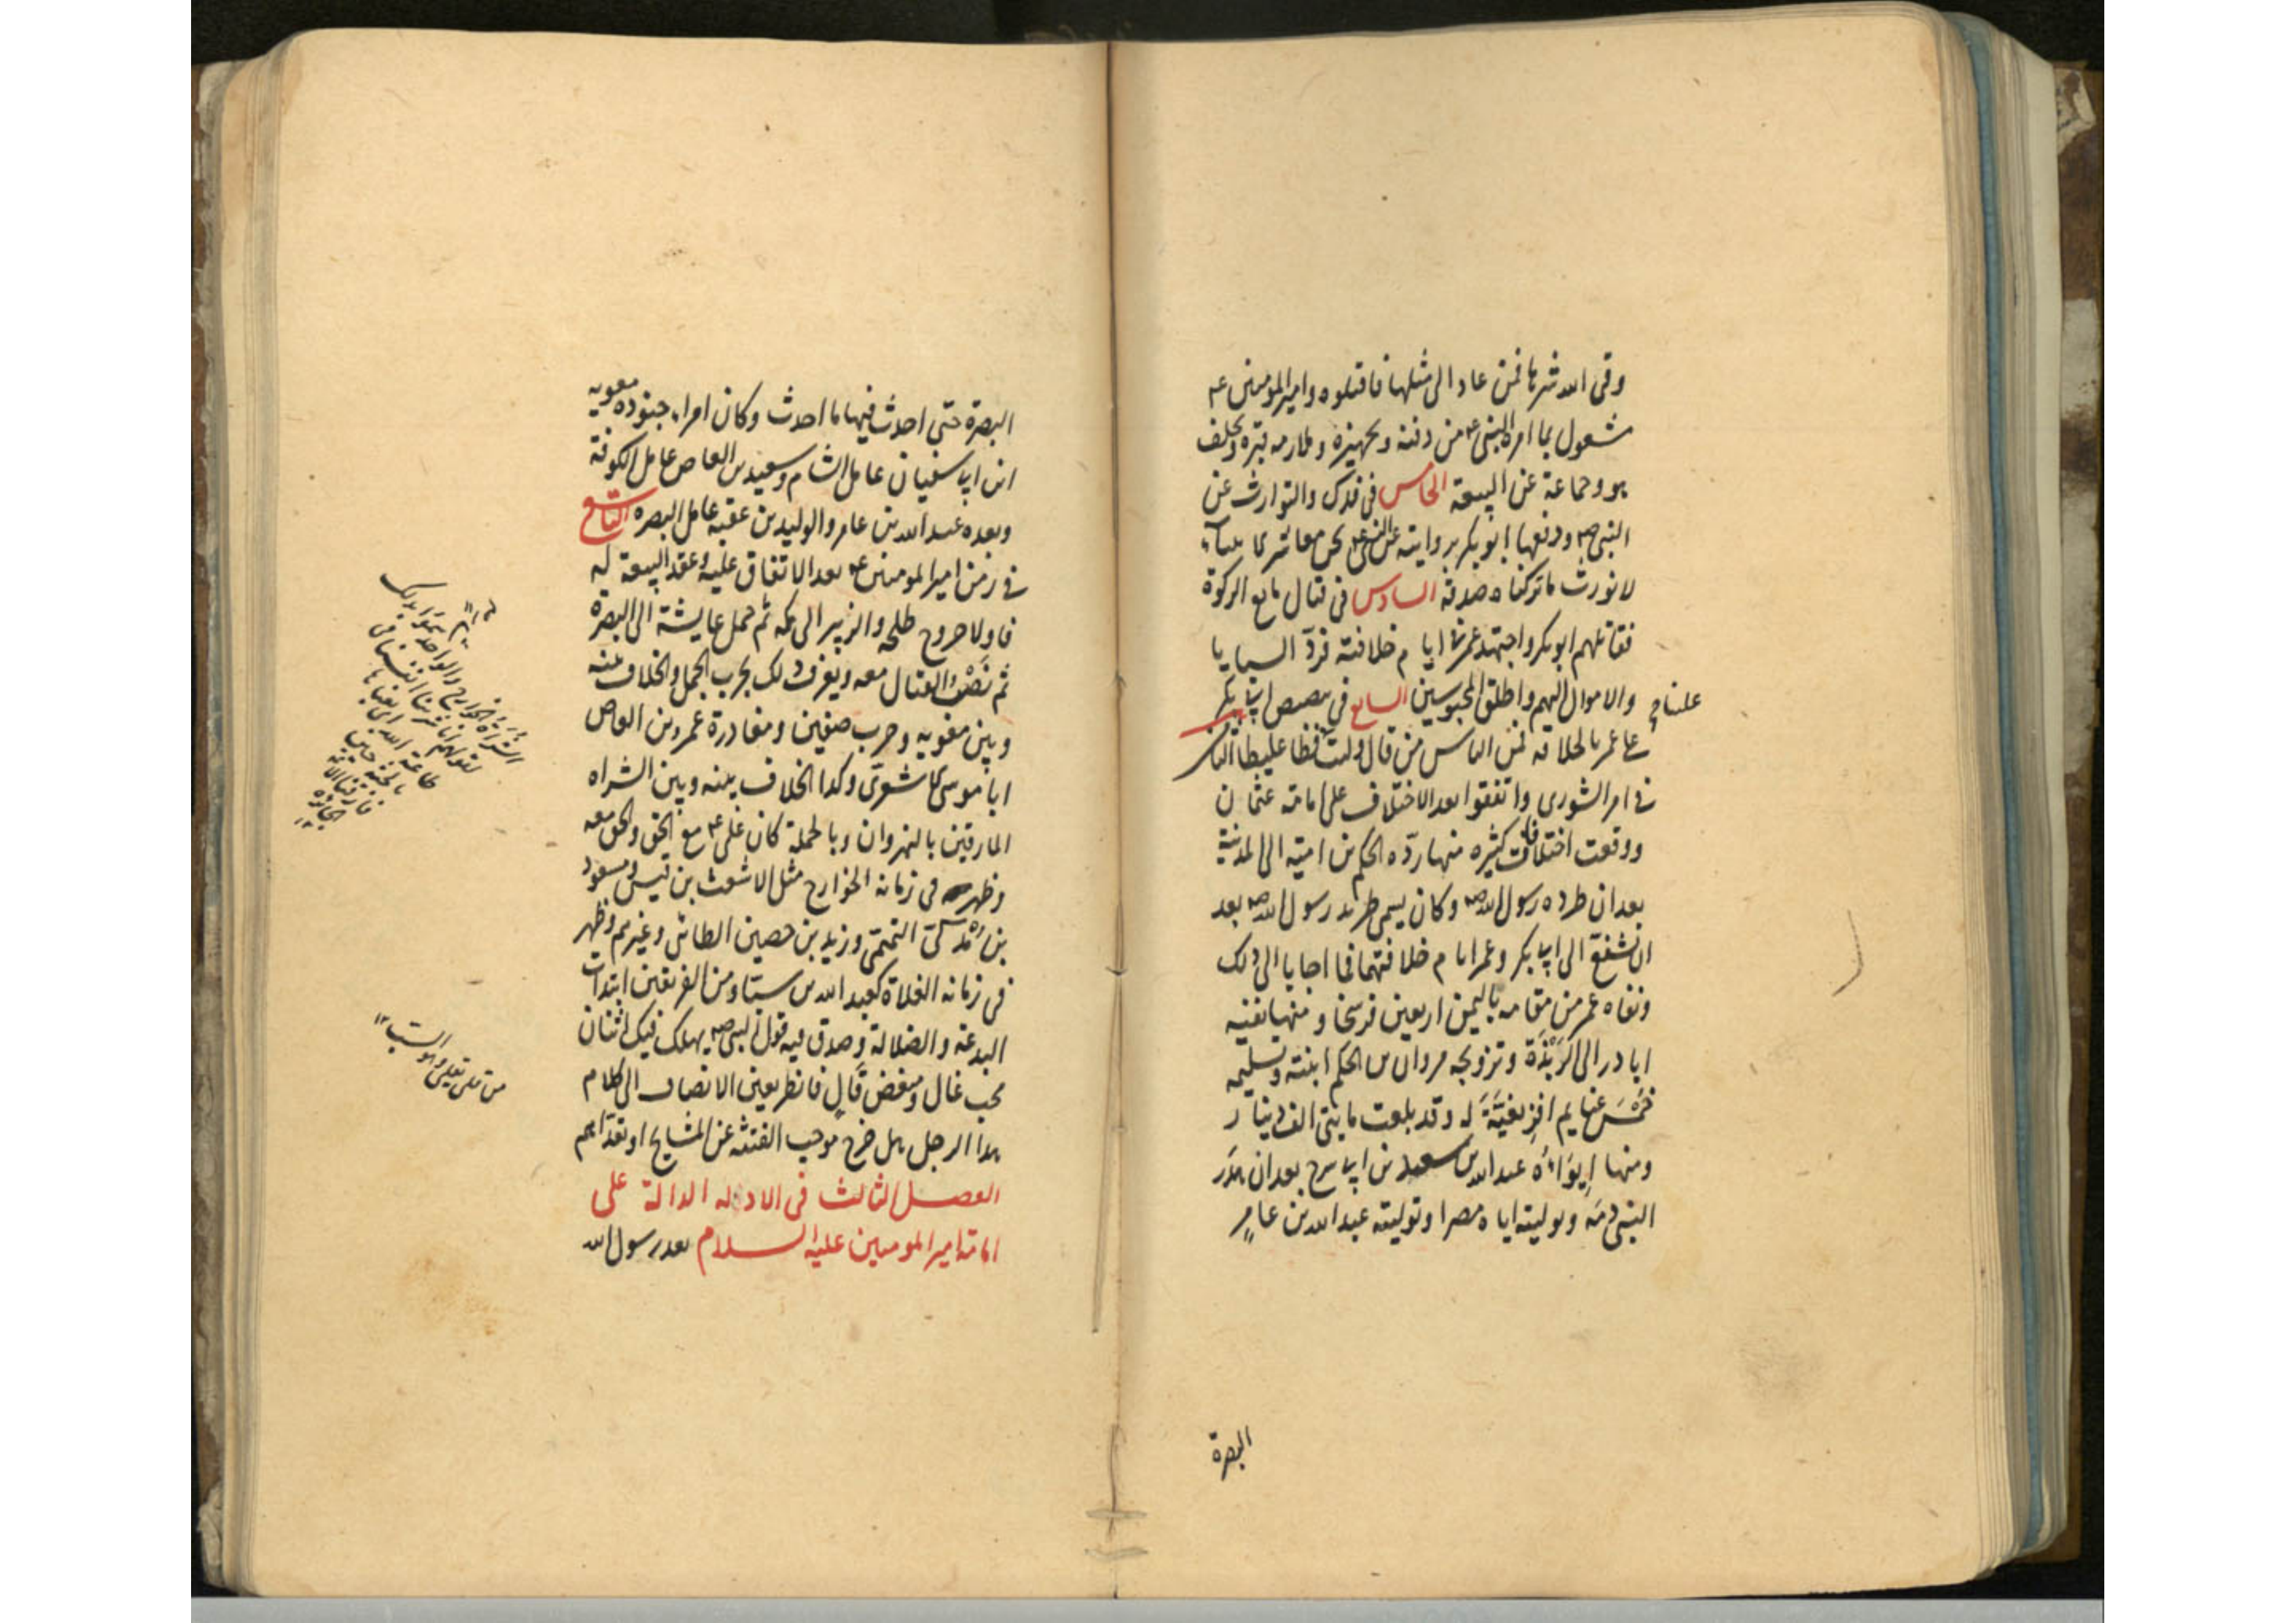 وقى الله شرها فمن عاد الى مثلها فاقتلوه وامير المومنين عم
مشغول بما امره النبى عم من دفنه وتجهيزه وملازمه قبره وتخلف
هو وجماعة عن البيعة الخامس فى فدك والتوارث عن
النبى صم ودفعها ابو بكر بروايته عن النبى عم نحن معاشر الانبياء
لا نورث ما تركناه صدقة السادس فى قتال مانع الزكوة
فقاتلهم ابو بكر واجتهد عمر فى ايام خلافته فردّ السبايا
والاموال اليهم واطلق المحبوسين السابع فى تنصيص ابى بكر
على عمر بالخلافة فمن الناس من قال وليت علينا فظا غليظا الثامن
فى امر الشورى واتفقوا بعد الاختلاف على امامة عثمان
ووقعت اختلافات كثيره منها ردّه الحكم بن امية الى المدينة
بعد ان طرده رسول الله صم وكان يسمى طريد رسول الله صم بعد
ان تشفع الى ابى بكر وعمر ايام خلافتهما فما اجابا الى ذلك
ونفاه عمر من مقامه باليمن اربعين فرسخا ومنها نفيه
ابا ذر الى الرَبْذَة وتزويجه مروان بن الحكم ابنته وتسليمه
خُمْسَ غنايم افريقيَّةَ له وقد بلغت مايتى الف دينار
ومنها اِيوَاءُه عبد الله بن سعيد بن ابى سرح بعد ان هدَر
النبى دمَه وتوليته اياه مصرا وتوليته عبد الله بن عامرٍ
البصرة
البصرة حتى احدث فيها ما احدث وكان امراء جنوده معويه
ابن ابى سفيان عامل الشام وسعيد بن العاص عامل الكوفة
وبعده عبد الله بن عامر والوليد بن عقبة عامل البصره التاسع
فى زمن امير المومنين عم بعد الاتفاق عليه وعقد البيعة له
فاولا خروج طلحه والزبير الى مكه ثم حمل عايشة الى البصرة
ثم نَصْبُ القتال معه ويعرف ذلك بحرب الجمل والخلاف بينه
وبين معويه وحرب صفين ومغادرة عمرو بن العاص
ابا موسى الاشعرى وكذا الخلاف بينه وبين الشراه
المارقين بالنهروان وبالجملة كان على عم مع الحق والحق معه
وظهر فى زمانه الخوارج مثل الاشعث بن قيس ومسعود
بن مذكى التميمى وزيد بن حصين الطائى وغيرهم وظهر
فى زمانه الغلاة كعبد الله بن سبا ومن الفريقين ابتدات
البدعة والضلالة وصدق فيه قول النبى صم يهلك فيك اثنان
محب غال ومبغض قالٍ فانظر بعين الانصاف الى كلام
هذا الرجل هل خرج موجب الفتنه عن المشايخ او تعدّاهم
الفصل الثالث فى الادله الدالة على
امامة امير المومنين عليه السلام بعد رسول الله
الشُرَاة الخوارج والواحد شار سموا بذلك
لقولهم انا شرينا انفسنا فى
طاعة الله اى بعناها
بالجنة حين
فارقنا الائمة
الجائرة